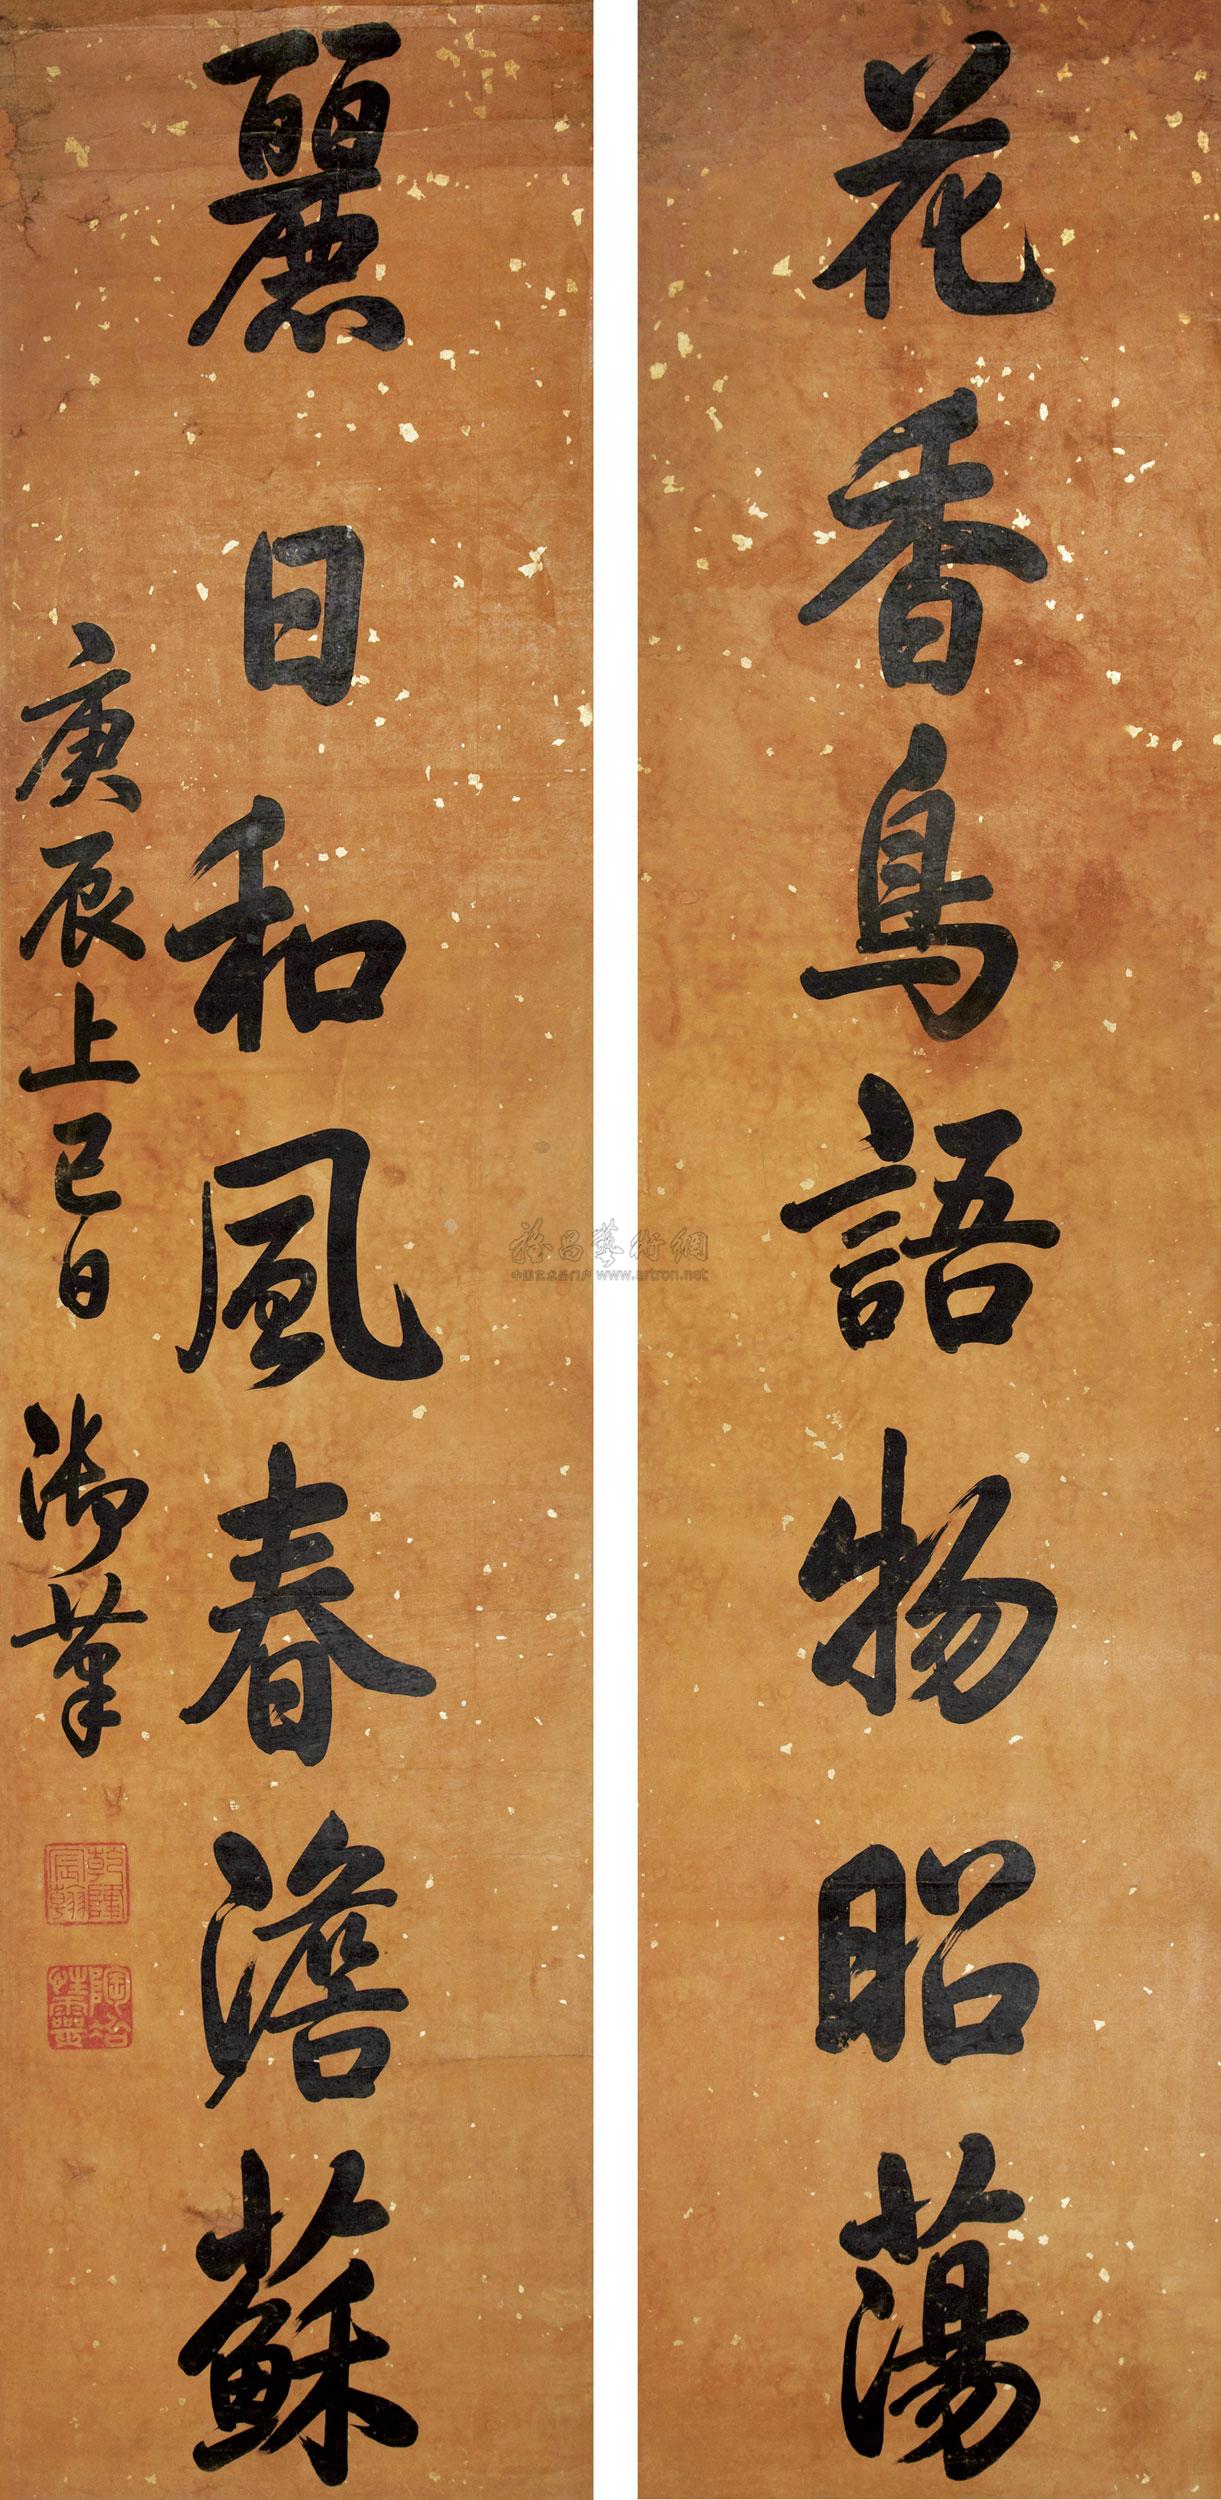 花香鳥語物昭蕩
麗日和風春澹蘇
庚辰上巳日 御筆
乾隆宸翰
陶冶性靈
雅昌藝術網
中国艺术品门户 www.artron.net